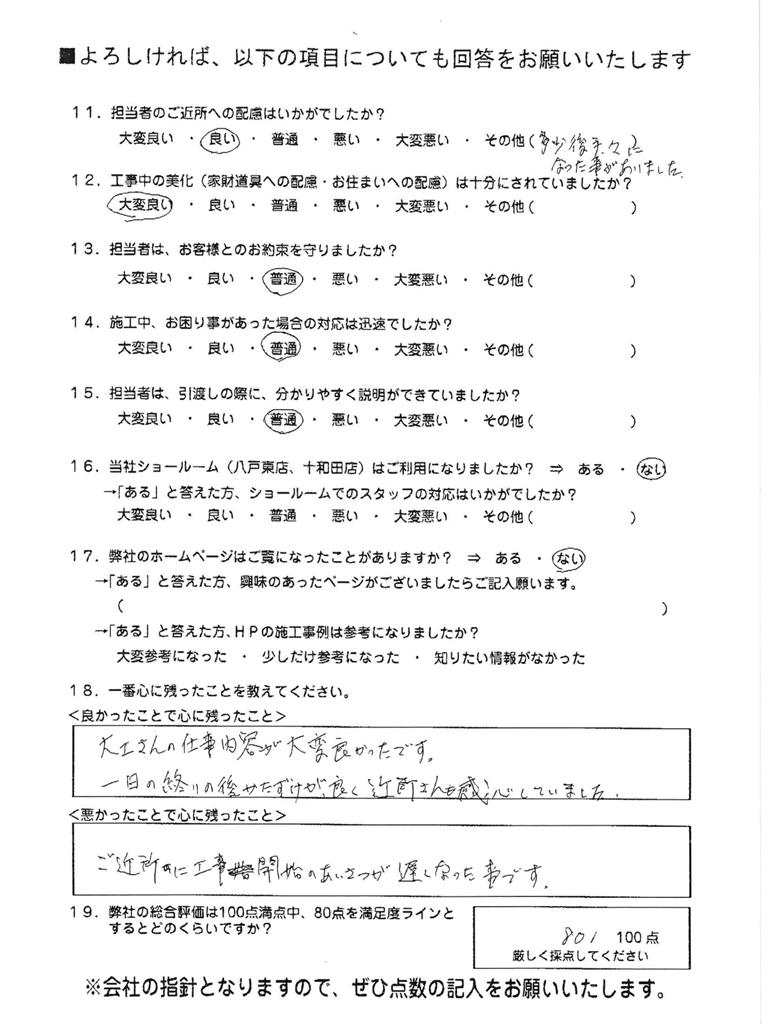 ■よろしければ、以下の項目についても回答をお願いいたします
11．担当者のご近所への配慮はいかがでしたか？
大変良い ・ 良い ・ 普通 ・ 悪い ・ 大変悪い ・ その他(多少後手々に
なった事がありました。
12．工事中の美化（家財道具への配慮・お住まいへの配慮）は十分にされていましたか？
大変良い ・ 良い ・ 普通 ・ 悪い ・ 大変悪い ・ その他( )
13．担当者は、お客様とのお約束を守りましたか？
大変良い ・ 良い ・ 普通 ・ 悪い ・ 大変悪い ・ その他( )
14．施工中、お困り事があった場合の対応は迅速でしたか？
大変良い ・ 良い ・ 普通 ・ 悪い ・ 大変悪い ・ その他( )
15．担当者は、引渡しの際に、分かりやすく説明ができていましたか？
大変良い ・ 良い ・ 普通 ・ 悪い ・ 大変悪い ・ その他( )
16．当社ショールーム（八戸東店、十和田店）はご利用になりましたか？ ⇒ ある ・ ない
→「ある」と答えた方、ショールームでのスタッフの対応はいかがでしたか？
大変良い ・ 良い ・ 普通 ・ 悪い ・ 大変悪い ・ その他( )
17．弊社のホームページはご覧になったことがありますか？ ⇒ ある ・ ない
→「ある」と答えた方、興味のあったページがございましたらご記入願います。
( )
→「ある」と答えた方、ＨＰの施工事例は参考になりましたか？
大変参考になった ・ 少しだけ参考になった ・ 知りたい情報がなかった
18．一番心に残ったことを教えてください。
<良かったことで心に残ったこと>
大工さんの仕事内容が大変良かったです。
一日の終りの後かたずけが、良く近所さんも感心していました。
<悪かったことで心に残ったこと>
ご近所に工事開始のあいさつが遅くなった事です。
19．弊社の総合評価は100点満点中、80点を満足度ラインと
するとどのくらいですか？
80/ 100点
厳しく採点してください
※会社の指針となりますので、ぜひ点数の記入をお願いいたします。